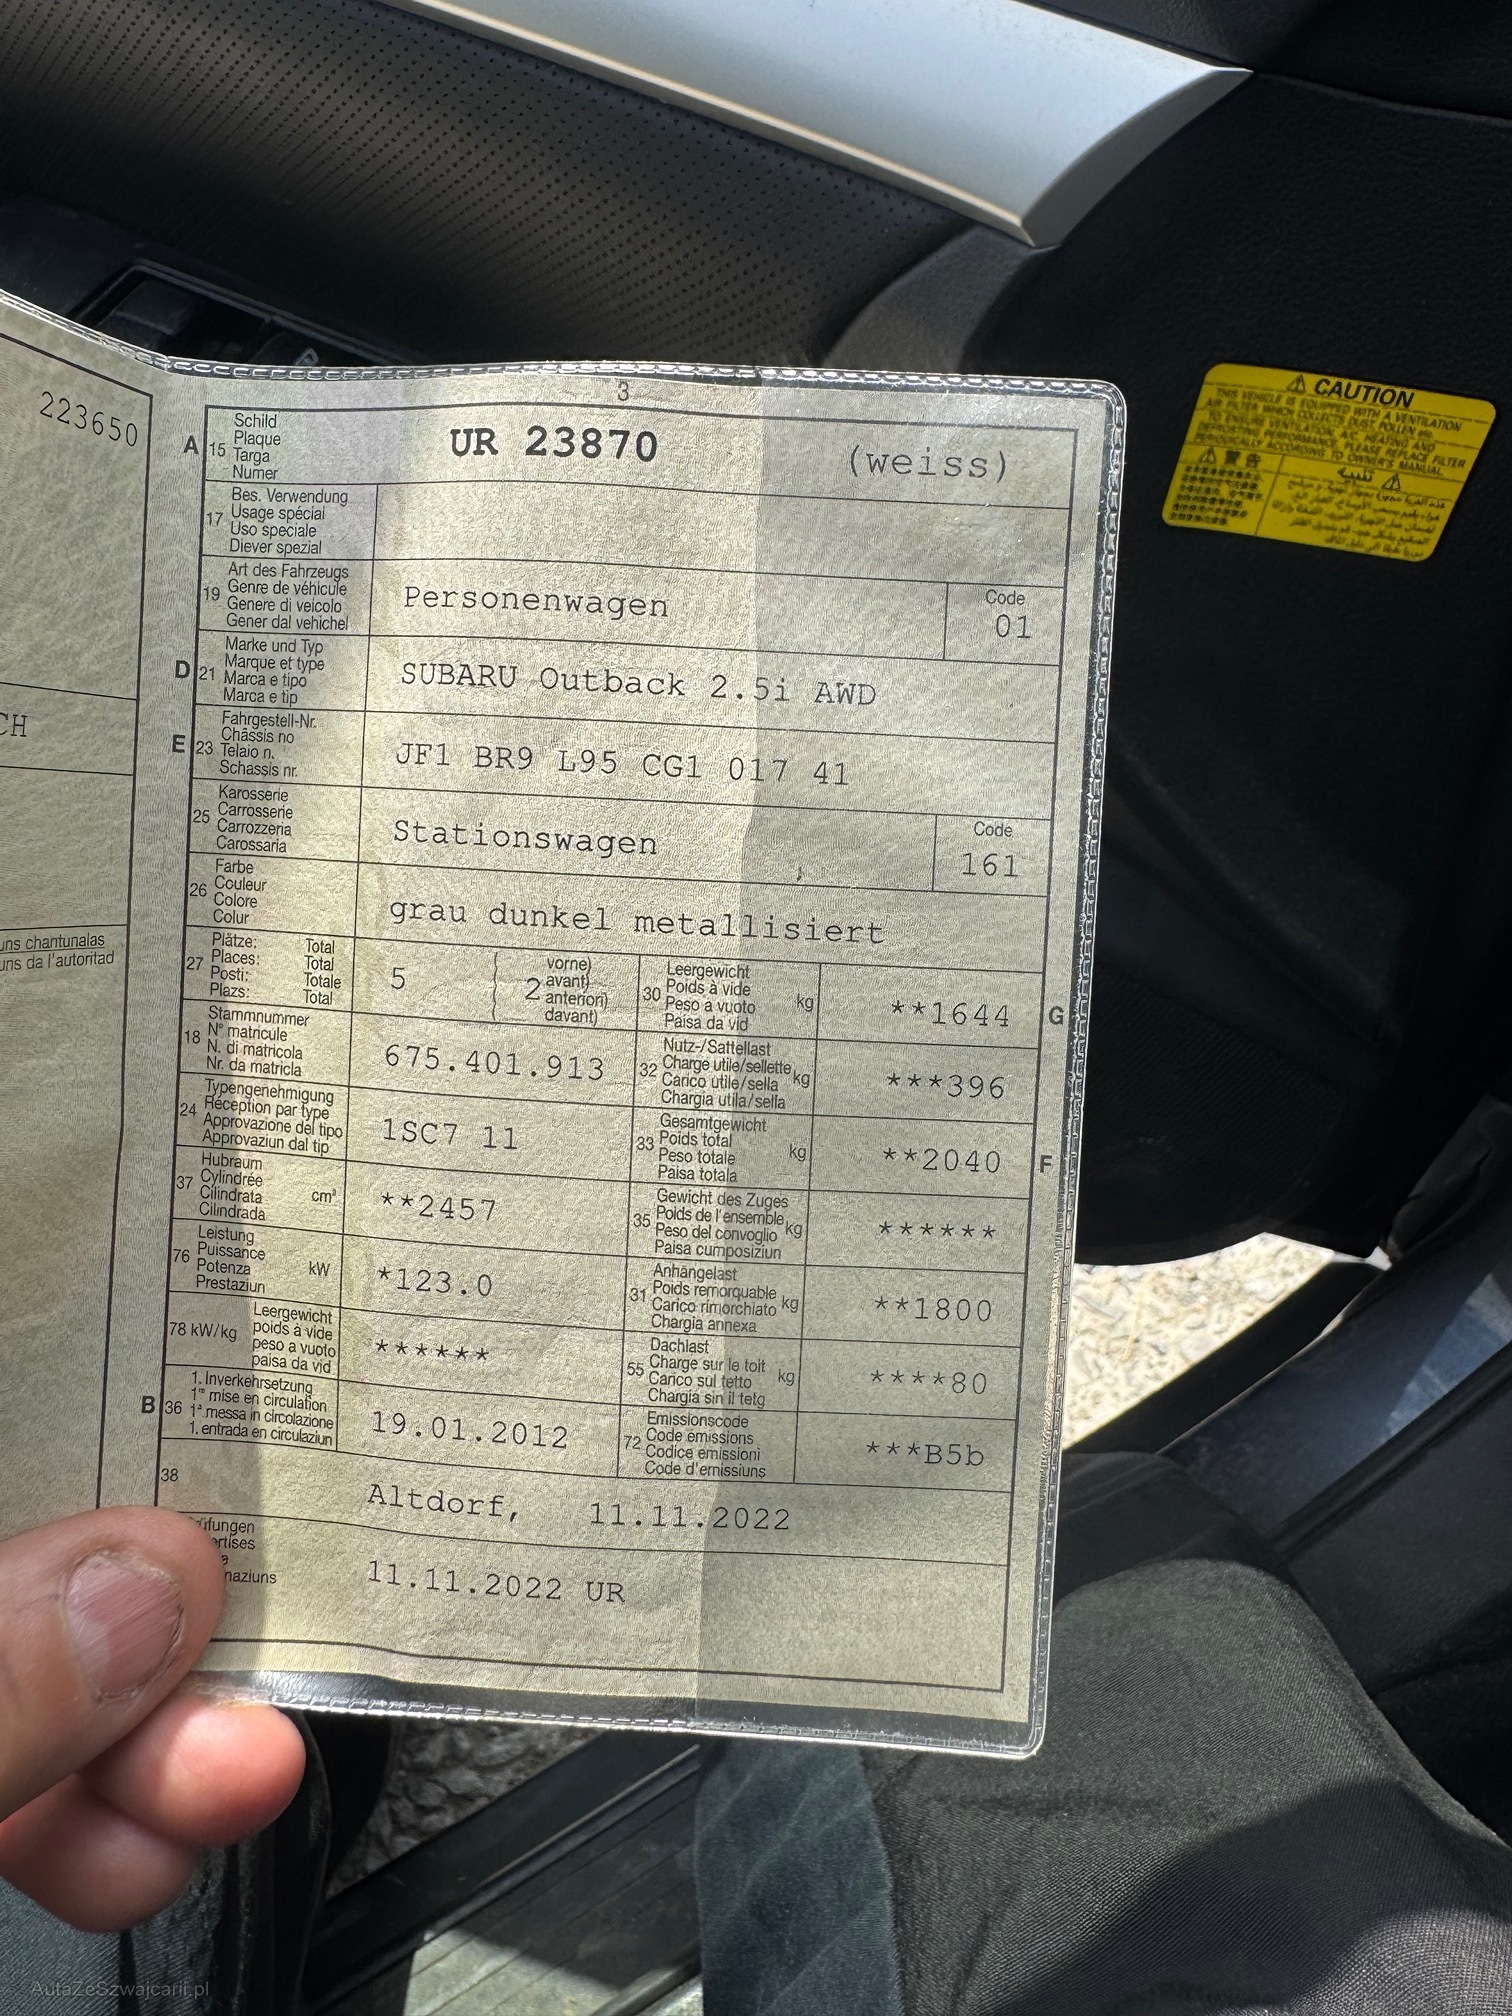 223650
CH
uns chantunalas
uns da l'autoritad
3
A 15 Schild
Plaque
Targa
Numer
UR 23870 (weiss)
17 Bes. Verwendung
Usage spécial
Uso speciale
Diever spezial
19 Art des Fahrzeugs
Genre de véhicule
Genere di veicolo
Gener dal vehichel
Personenwagen
Code
01
D 21 Marke und Typ
Marque et type
Marca e tipo
Marca e tip
SUBARU Outback 2.5i AWD
E 23 Fahrgestell-Nr.
Châssis no
Telaio n.
Schassis nr.
JF1 BR9 L95 CG1 017 41
25 Karosserie
Carrosserie
Carrozzeria
Carossaria
Stationswagen
Code
161
26 Farbe
Couleur
Colore
Colur
grau dunkel metallisiert
27 Plätze: Total
Places: Total
Posti: Totale
Plazs: Total
5
2 vorne)
avant)
anteriori)
davant)
30 Leergewicht
Poids à vide
Peso a vuoto
Paisa da vid
kg
**1644
G
18 Stammnummer
N° matricule
N. di matricola
Nr. da matricla
675.401.913
32 Nutz-/Sattellast
Charge utile/sellette
Carico utile/sella
Chargia utila/sella
kg
***396
24 Typengenehmigung
Réception par type
Approvazione del tipo
Approvaziun dal tip
1SC7 11
33 Gesamtgewicht
Poids total
Peso totale
Paisa totala
kg
**2040
F
37 Hubraum
Cylindrée
Cilindrata
Cilindrada
cm³
**2457
35 Gewicht des Zuges
Poids de l'ensemble
Peso del convoglio
Paisa cumposiziun
kg
******
76 Leistung
Puissance
Potenza
Prestaziun
kW
*123.0
31 Anhängelast
Poids remorquable
Carico rimorchiato
Chargia annexa
kg
**1800
78 kW/kg Leergewicht
poids à vide
peso a vuoto
paisa da vid
******
55 Dachlast
Charge sur le toit
Carico sul tetto
Chargia sin il tetg
kg
****80
B 36 1. Inverkehrsetzung
1re mise en circulation
1a messa in circolazione
1. entrada en circulaziun
19.01.2012
72 Emissionscode
Code émissions
Codice emissioni
Code d'emissiuns
***B5b
38
Altdorf, 11.11.2022
üfungen
ertises
naziuns
11.11.2022 UR
CAUTION
THIS VEHICLE IS EQUIPPED WITH A VENTILATION
AIR FILTER WHICH COLLECTS DUST, POLLEN, AND
PLEASE REPLACE FILTER
PERIODICALLY ACCORDING TO OWNER'S MANUAL.
تنبيه
AutaZeSzwajcarii.pl